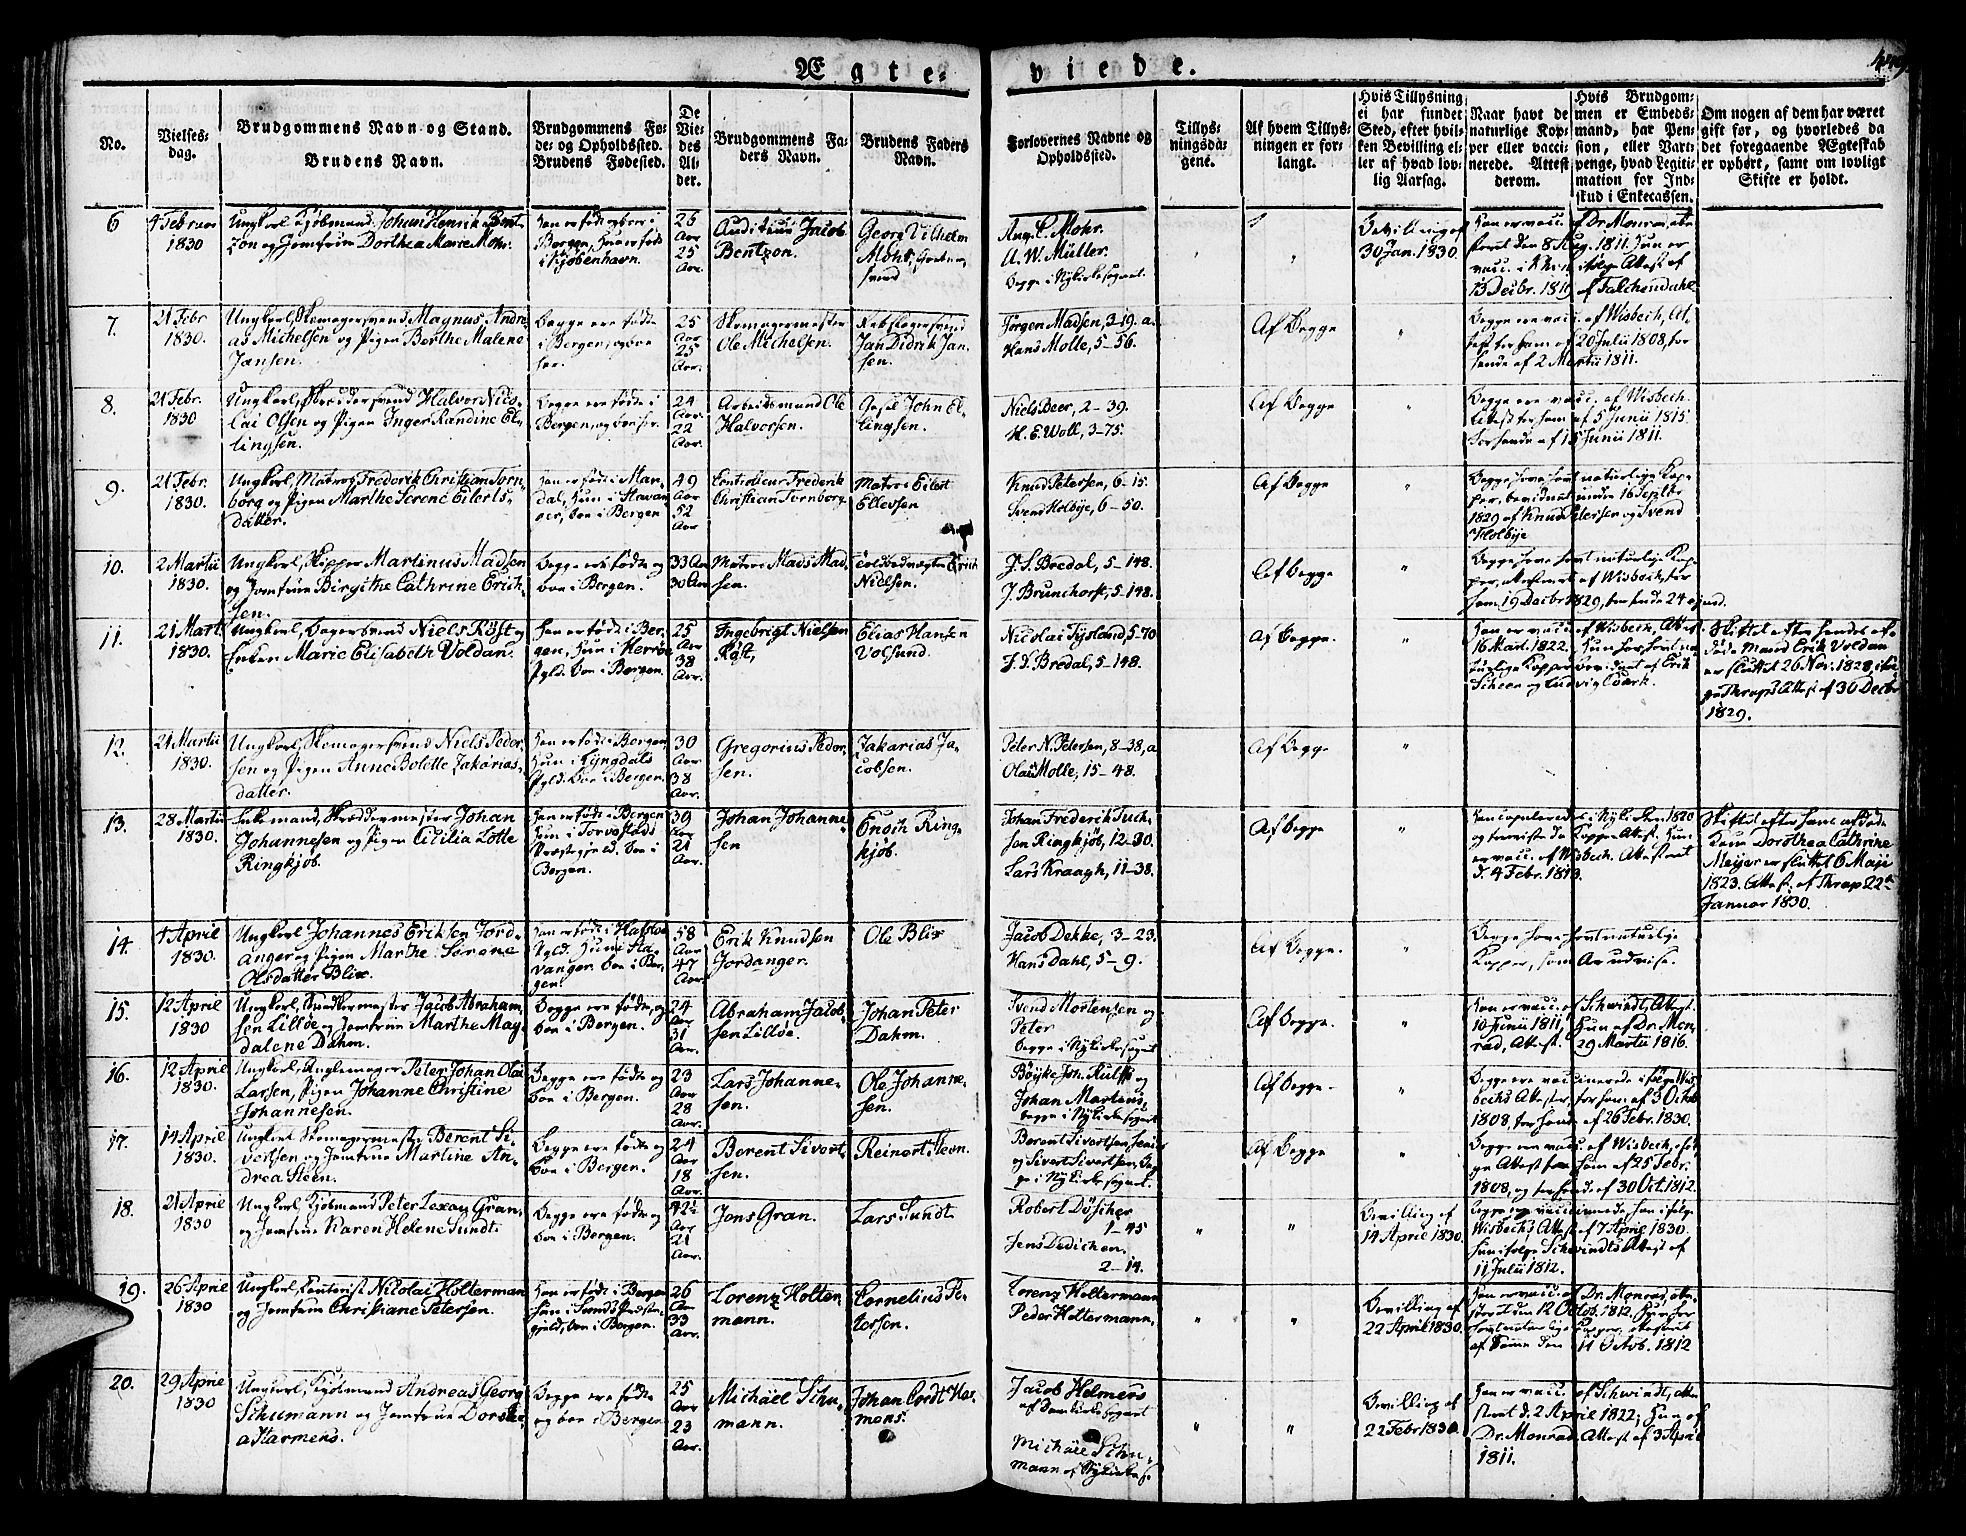 Ægte-
viede.
No.
Vielses-
dag.
Brudgommens Navn og Stand.
Brudens Navn.
Brudgommens Fø-
de- og Opholdssted.
Brudens Fødested.
De
Vie-
des
Al-
der.
Brudgommens Fa-
ders Navn.
Brudens Faders
Navn.
Forlovernes Navne og
Opholdssted.
Tillys-
ningsda-
gene.
Af hvem Tillys-
ningen er for-
langt.
Hvis Tillysning
ei har fundet
Sted, efter hvil-
ken Bevilling el-
ler af hvad lov-
lig Aarsag.
Naar havt de
naturlige Kop-
per eller vacci-
nerede. Attest
derom.
Hvis Brudgom-
men er Embeds-
mand, har Pen-
sion, eller Vart-
penge, hvad Legiti-
mation for Ind-
skud i Enkecassen.
Om nogen af dem har været
gift før, og hvorledes da
det foregaaende Ægteskab
er ophørt, samt om lovligt
Skifte er holdt.
6
4 Februar
1830
Ungkarl, Kjøbmand Johan Henrik Bent-
zon og Jomfrue Dorthea Marie Mohr.
Han er født og boer i
Bergen, Hun er født
i Kjøbenhavn.
26
Aar
25
Aar.
Auditeur Jacob
Bentzon.
Georg Vilhelm
Mohr,
svend
Aug. C. Mohr.
A. W. Müller.
begge i Nykirkesognet.
Bevilling af
30 Jan. 1830.
Han er vacc. af Dr. Monrad, atte-
steret den 8 Aug. 1811. Hun er
vacc. i ifølge Attest af
13 Decbr. 1819 af Falchendahl
7.
21 Febr
1830.
Ungkarl, Skomagersvend Magnus Andre-
as Michelsen og Pigen Berthe Malene
Jansen.
Begge ere fødte
i Bergen, og boe
her.
25
Aar
25
Aar.
Skomagermester
Ole Michelsen.
Rebslagersvend
Jan Didrik Jan-
sen.
Jørgen Madsen, 3-19. a.
Hans Molle, 5-56.
Af Begge
Begge ere vacc. af Wisbech, At-
test for ham af 20 Julii 1808, for
hende af 2 Martii 1811.
8.
21 Febr.
1830
Ungkarl, Skræddersvend Halvor Nico-
lai Olsen og Pigen Inger Randine El-
lingsen.
Begge ere fødte i
Bergen, og boe her.
24
Aar.
22
Aar.
Arbeidsmand Ole
Halvorsen.
Gesel John El-
lingsen.
Niels Beer, 2-39.
H. E. Woll, 3-75.
Af Begge
Begge ere vacc. af Wisbech.
Attest for ham af 5 Junii 1815
for hende af 15 Junii 1811.
9.
21 Febr.
1830.
Ungkarl, Matros Frederik Christian Torn-
borg og Pigen Marthe Serene Eilerts-
datter.
Han er født i Man-
dal, Hun i Stavan-
ger, boe i Bergen
49
Aar
52
Aar
Controlleur Frederik
Christian Tornborg
Matros Eilert
Ellevsen
Knud Petersen, 6-15.
Svend Holbye, 6-50.
Af Begge
Begge have havt naturlige Kop-
per, bevidnet under 16 Septbr
1829 af Knud Petersen og Svend
Holbye
10.
2 Martii
1830.
Ungkarl, Skipper Martinus Madsen
og Jomfrue Birgithe Cathrine Erich-
sen.
Begge ere fødte og
boe i Bergen.
33 Aar
30 Aar
Matros Mads Mad-
sen.
Toldbodvægter Erich
Nielsen.
J. S. Bredal, 5-148.
J. Brunchorst, 5-148.
Af Begge
Begge have havt naturlige Kop-
per, attesteret af Wisbech, for
ham 19 Decbr 1829, for hende 24
11.
21 Mart.
1830.
Ungkarl, Bagersvend Niels Røst og
Enken Marie Elisabeth Voldan.
Han er født i Ber-
gen, Hun i Herrøe
Pgld. boe i Bergen.
25
Aar
38
Aar.
Ingebrigt Nielsen
Røst,
Elias Hansen
Volsund.
Nicolai Tysland, 5-70
J. S. Bredal, 5-148.
Af Begge.
Han er vacc. af Wisbech, Attest
16 Mart. 1822. Hun har havt na-
turlige Kopper bevidnet af Erik
Scheen og Ludvig
Skiftet efter hendes af-
døde Mand Erik Voldan
er sluttet 26 Nov. 1828, iføl-
ge Thraps Attest af 30 Decbr
1829.
12.
21 Martii
1830.
Ungkarl, Skomagersvend Niels Peder-
sen og Pigen Anne Bolette Zakarias-
datter.
Han er født i Bergen,
Hun i Lyngdals
Pgld. boe i Bergen.
30
Aar.
38
Aar.
Gregorius Peder-
sen.
Zakarias Ja-
cobsen.
Peter N. Petersen, 8-38, a
Olai Molle, 15-48.
Af Begge
13.
28 Martii
1830.
Enkemand, Skræddermester Johan
Johannesen og Pigen Cicilia Lotte
Ringkjøb.
Han er født i Bergen
Hun i Torvestads
Præstegjeld. boe i
Bergen.
39
Aar
21
Aar.
Johan Johanne-
sen
Enoch Ring-
kjøb.
Johan Frederik Tuch-
sen Ringkjøb, 12-30.
Lars Kraagh, 11-38.
Af Begge
Han copuleredes i Nykirken 1820
og beviiste da Kopper Attest. Hun
er vacc. af Wisbech. Attesteret
d. 4 Febr. 1813.
Skiftet efter hans afdøde
Kone Dorothea Cathrine
Meyer er sluttet 6 Maji
1823. Attest af Thrap 22de
Januar 1830.
14.
4 April
1830.
Ungkarl Johannes Eriksen Jord-
anger og Pigen Marthe Serene
Olsdatter Blix.
Han er født i Hafsloe
Pgld. Hun i Sta-
vanger. boe i Ber-
gen.
58
Aar
47
Aar.
Erik Knudsen
Jordanger.
Ole Blix
Jacob Dekke, 3-23.
Hans Dahl, 5-9.
Af Begge.
Begge have havt naturlige
Kopper, som Ar udvise.
15.
12 April
1830
Ungkarl, Snedkermester Jacob Abraham-
sen Lilløe og Jomfrue Marthe Mag-
dalene Dahm.
Begge ere fødte, og
boe i Bergen.
24
Aar
31
Aar.
Abraham Jacob-
sen Lilløe.
Johan Peter
Dahm.
Svend Mortensen og
Peter
begge i Nykirkesognet
Af Begge.
Han er vacc. af Schwindt, Attest
10 Junii 1811, Hun af Dr. Mon-
rad, Attest. 29 Martii 1816.
16.
12 April
1830.
Ungkarl, Anglemager Peter Johan Olai
Larsen, Pigen Johanne Christine
Johannesen.
Begge ere fødte og
boe i Bergen.
23
Aar
28
Lars Johanne-
sen.
Ole Johanne-
sen.
Bøyke Joh. Rulffs og
Johan Martens,
begge i Nykirkesognet
Af Begge.
Begge ere vaccinerede ifølge Wis-
bechs Attester, for ham af 3 Octob
1808, for hende af 26 Febr. 1830.
17.
14 April
1830.
Ungkarl Skomagermester Berent Si-
vertsen og Jomfrue Martine An-
drea Steen.
Begge ere fødte og
boe i Bergen.
24
Aar
18
Aar.
Berent Sivert-
sen.
Reinert Steen.
Berent Sivertsen, senior
og Sivert Sivertsen, beg-
ge i Nykirkesognet.
Af Begge
Begge ere vacc. af Wisbech, føl-
ge Attest for ham af 25 Febr.
1808, og for hende af 30 Oct. 1812.
18.
21 April
1830
Ungkarl, Kjøbmand Peter Lexau Gran,
og Jomfrue Karen Helene Sundt.
Begge ere fødte og
boe i Bergen.
42½
Aar
21
Aar.
Jens Gran.
Lars Sundt
Robert Döscher
1-45
Jens Dedichen.
2-14.
Bevilling af
14 April 1830.
Begge ere vaccinerede, han ifølge
Wisbechs Attest af 7 April 1830.
hun ifølge Schwindts Attest af
11 Julii 1812.
19.
26 April
1830
Ungkarl, Contorist Nicolai Holtermann
og Jomfrue Christiane Petersen.
Han er født i Bergen
hun i Sunds Præste-
gjeld, boe i Bergen.
26
Aar
33
Aar.
Lorenz Holter-
mann.
Cornelius Pe-
tersen.
Lorenz Holtermann
Peder Holtermann.
Bevilling af
22 April 1830.
Han er vacc. af Dr. Monrad, atte-
steret den 12 Octob. 1812. Hun har
havt naturlige Kopper, attesteret
af Samme den 11 Octob. 1812
20.
29 April
1830
Ungkarl, Kjøbmand Andreas Georg
Schumann og Jomfrue Dorothe-
a Harmens.
Begge ere fødte
og boe i Bergen
25
Aar
23
Aar.
Michael Schu-
mann.
Johan Cordt Har-
mens.
Jacob Helmers
af Domkirkesognet
Michael Schu-
mann af Nykirkes
Bevilling af
22 Febr 1830
Han er vacc. af Schwindt, atte-
steret d. 2 April 1822; Hun af
Dr. Monrad. Attest af 3 April
1811.